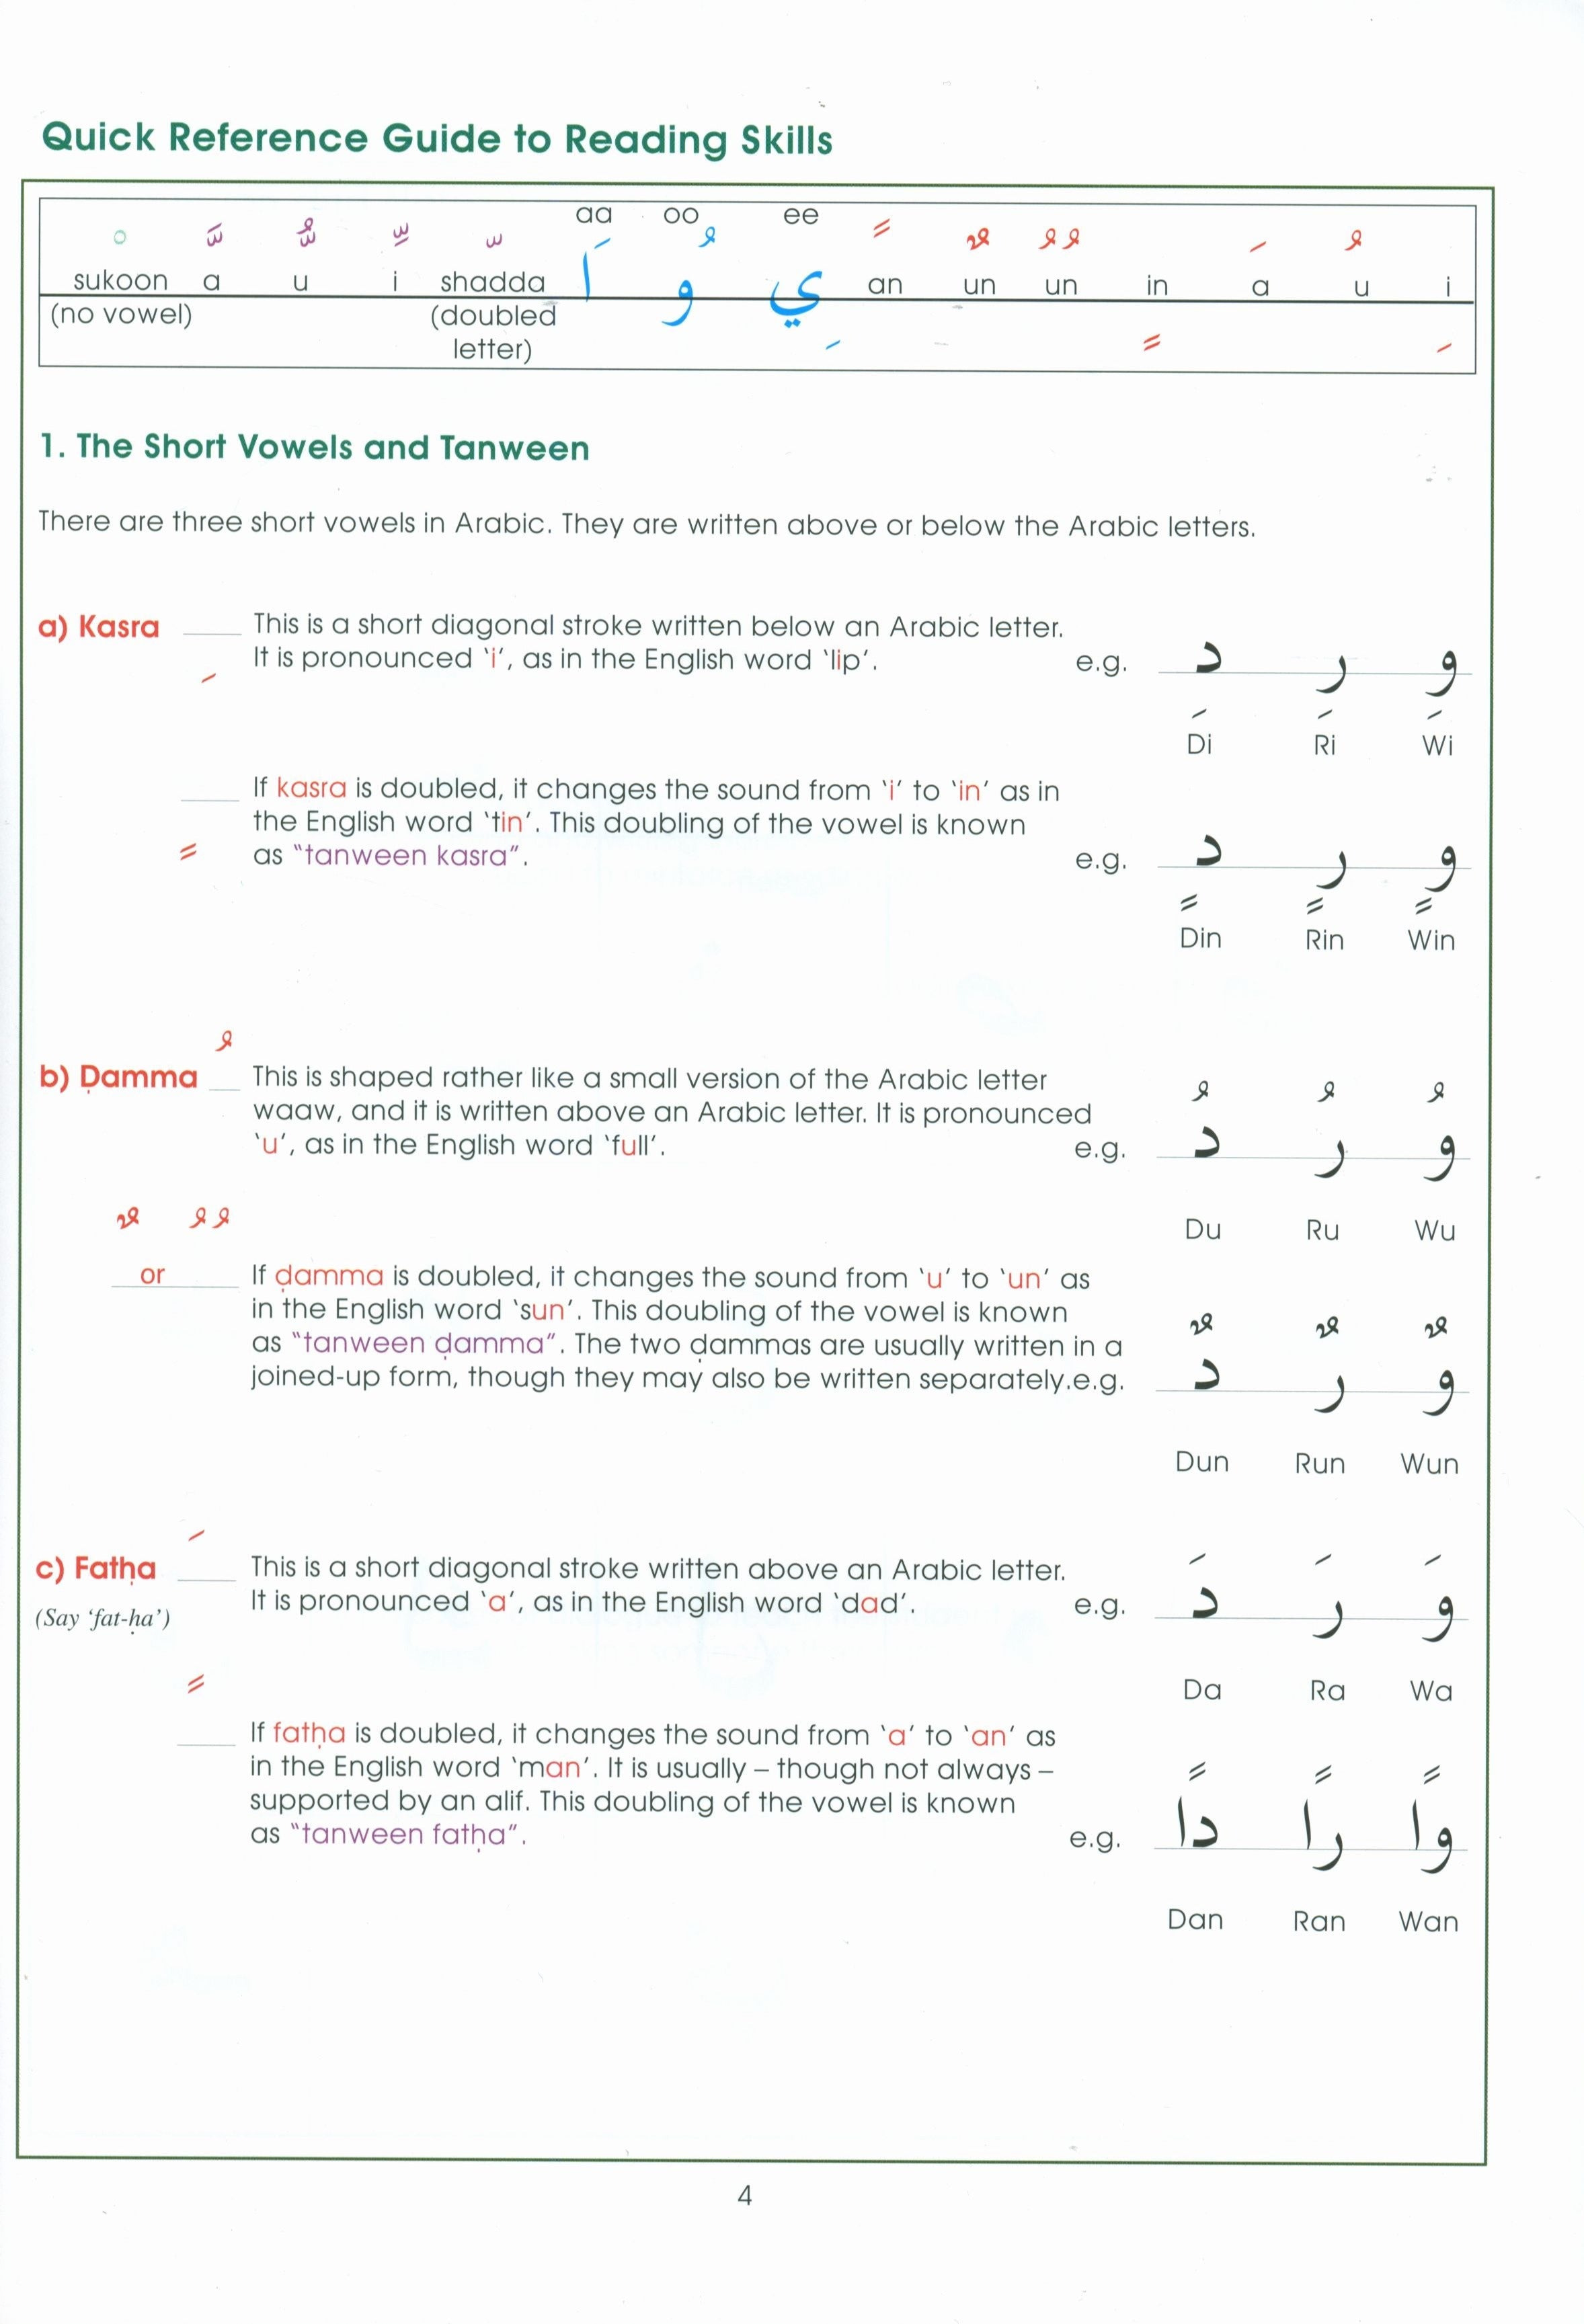 Quick Reference Guide to Reading Skills
aa oo ee
ـْ ـَّ ـُّ ـِّ ـّ َا ُو ِي ـً ـٌ ـُـُ ـَ ـُ
sukoon a u i shadda an un un in a u i
(no vowel) (doubled
letter)
ـٍ ـِ
1. The Short Vowels and Tanween
There are three short vowels in Arabic. They are written above or below the Arabic letters.
a) Kasra ـِ This is a short diagonal stroke written below an Arabic letter.
It is pronounced ‘i’, as in the English word ‘lip’. e.g. دِ رِ وِ
Di Ri Wi
If kasra is doubled, it changes the sound from ‘i’ to ‘in’ as in
the English word ‘tin’. This doubling of the vowel is known
ـٍ as “tanween kasra”. e.g. دٍ رٍ وٍ
Din Rin Win
b) Ḍamma ـُ This is shaped rather like a small version of the Arabic letter
waaw, and it is written above an Arabic letter. It is pronounced
‘u’, as in the English word ‘full’. e.g. دُ رُ وُ
Du Ru Wu
ـٌ or ـُـُ If ḍamma is doubled, it changes the sound from ‘u’ to ‘un’ as
in the English word ‘sun’. This doubling of the vowel is known
as “tanween ḍamma”. The two ḍammas are usually written in a
joined-up form, though they may also be written separately.e.g. دٌ رٌ وٌ
Dun Run Wun
c) Fatḥa ـَ This is a short diagonal stroke written above an Arabic letter.
(Say ‘fat-ḥa’) It is pronounced ‘a’, as in the English word ‘dad’. e.g. دَ رَ وَ
Da Ra Wa
ـً If fatḥa is doubled, it changes the sound from ‘a’ to ‘an’ as
in the English word ‘man’. It is usually – though not always –
supported by an alif. This doubling of the vowel is known
as “tanween fatḥa”. e.g. داً راً واً
Dan Ran Wan
4